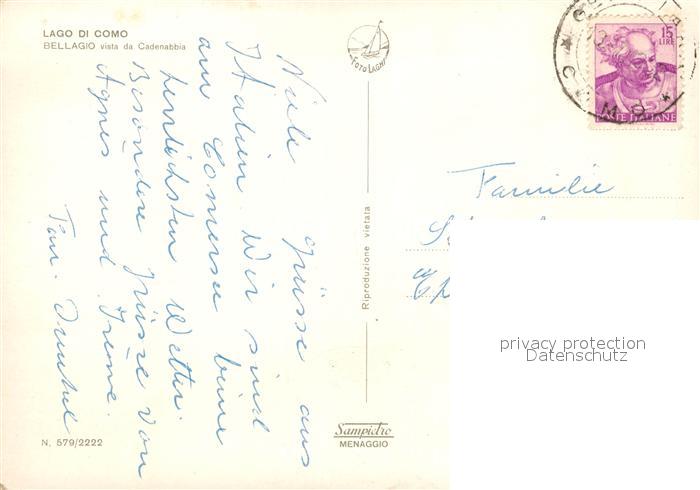 LAGO DI COMO
BELLAGIO vista da Cadenabbia
Viele Grüsse aus
Italien. Wir sind
am Comersee beim
herrlichsten Wetter.
Besondere Grüsse von
Agnes und Irene.
Fam.
N. 579/2222
FOTO LAGHI
Riproduzione vietata
Sampietro
MENAGGIO
15
LIRE
POSTE ITALIANE
Familie
privacy protection
Datenschutz